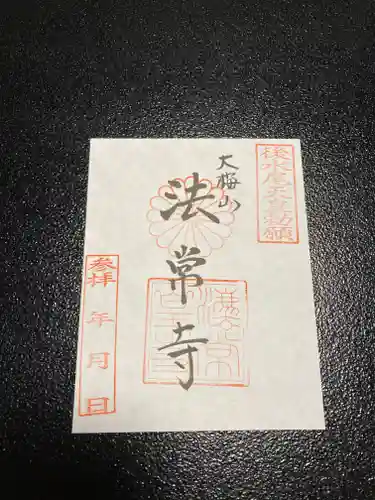 後水尾天皇勅願
大梅山
法常寺
参拝 年 月 日